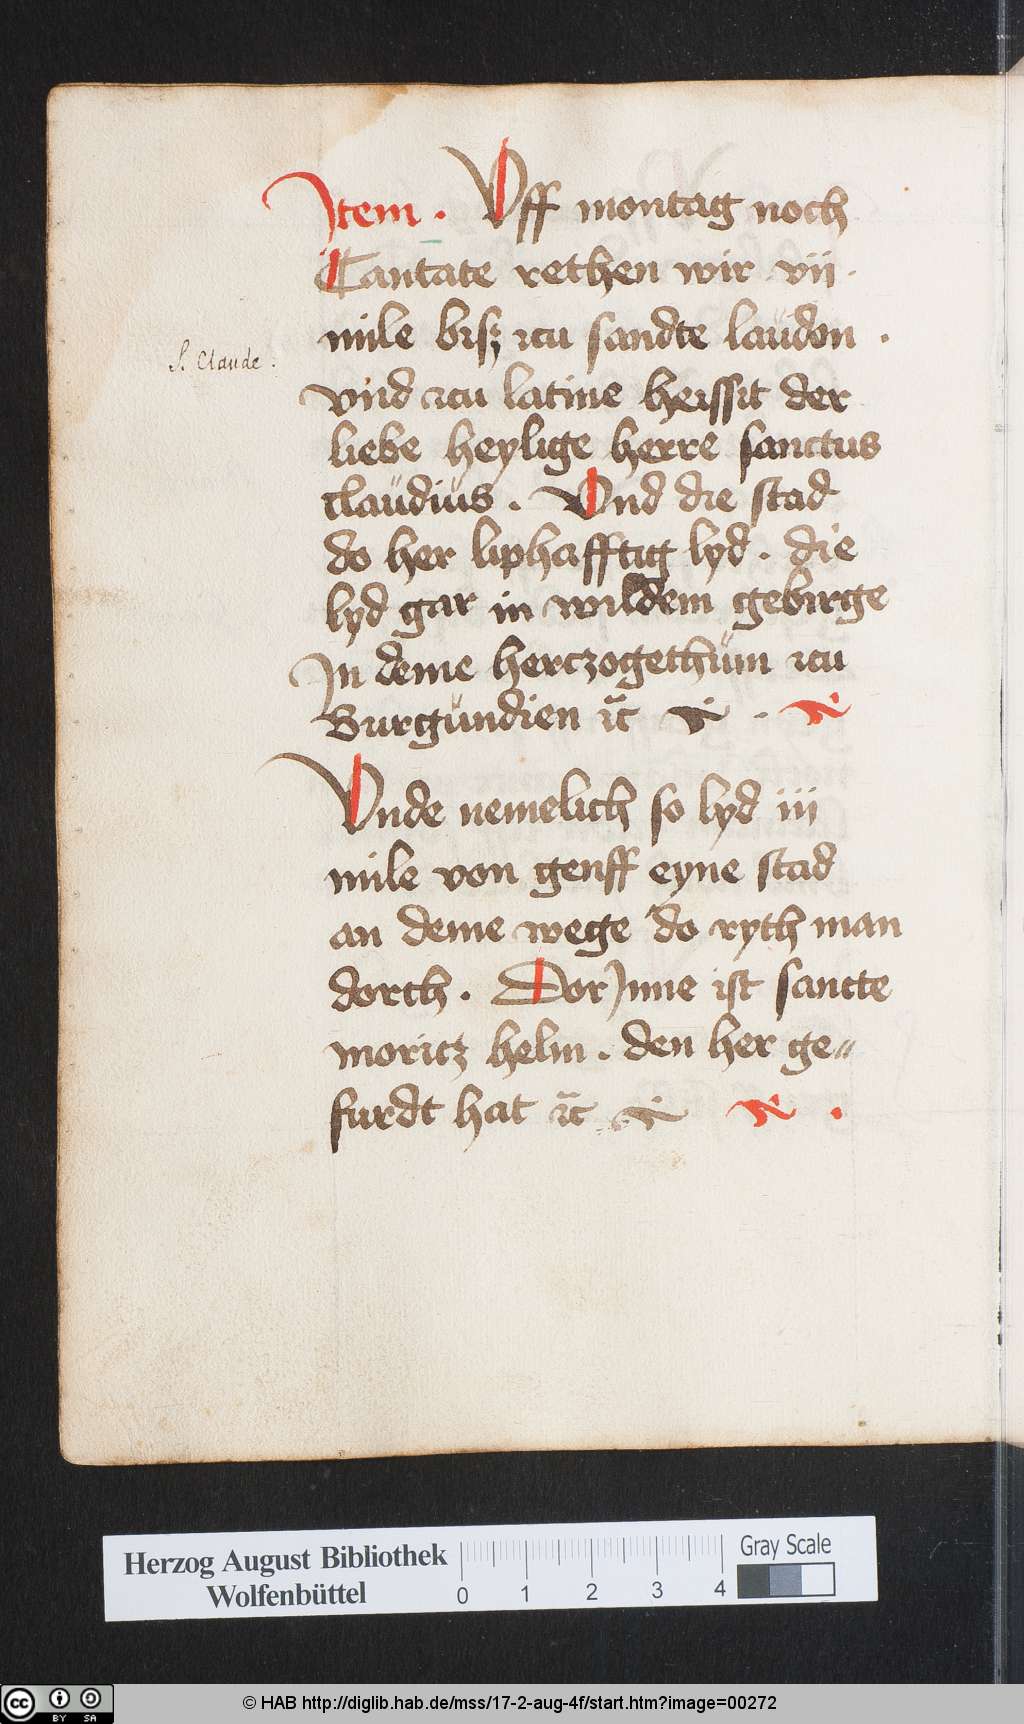 Item . Uff montag noch
Cantate rethen wir vii .
mile bisz zcu sandte laŭdon .
S. Claude .
vnd zcu latine heissit der
liebe heylige herre sanctus
claŭdiŭs . Vnd die stad
do her liphafftig lyd . die
lyd gar in wildem gebirge
In deme herczogethŭm zcu
Burgŭndien ꝛc̃ .
Vnde nemelich so lyd iii
mile von genff eyne stad
an deme wege do ryth man
dorch . Dor Jnne ist sancte
moritz helm . den her ge〃
furdt hat ꝛc̃ .
Herzog August Bibliothek
Wolfenbüttel
0 1 2 3 4
Gray Scale
cc BY SA
© HAB http://diglib.hab.de/mss/17-2-aug-4f/start.htm?image=00272